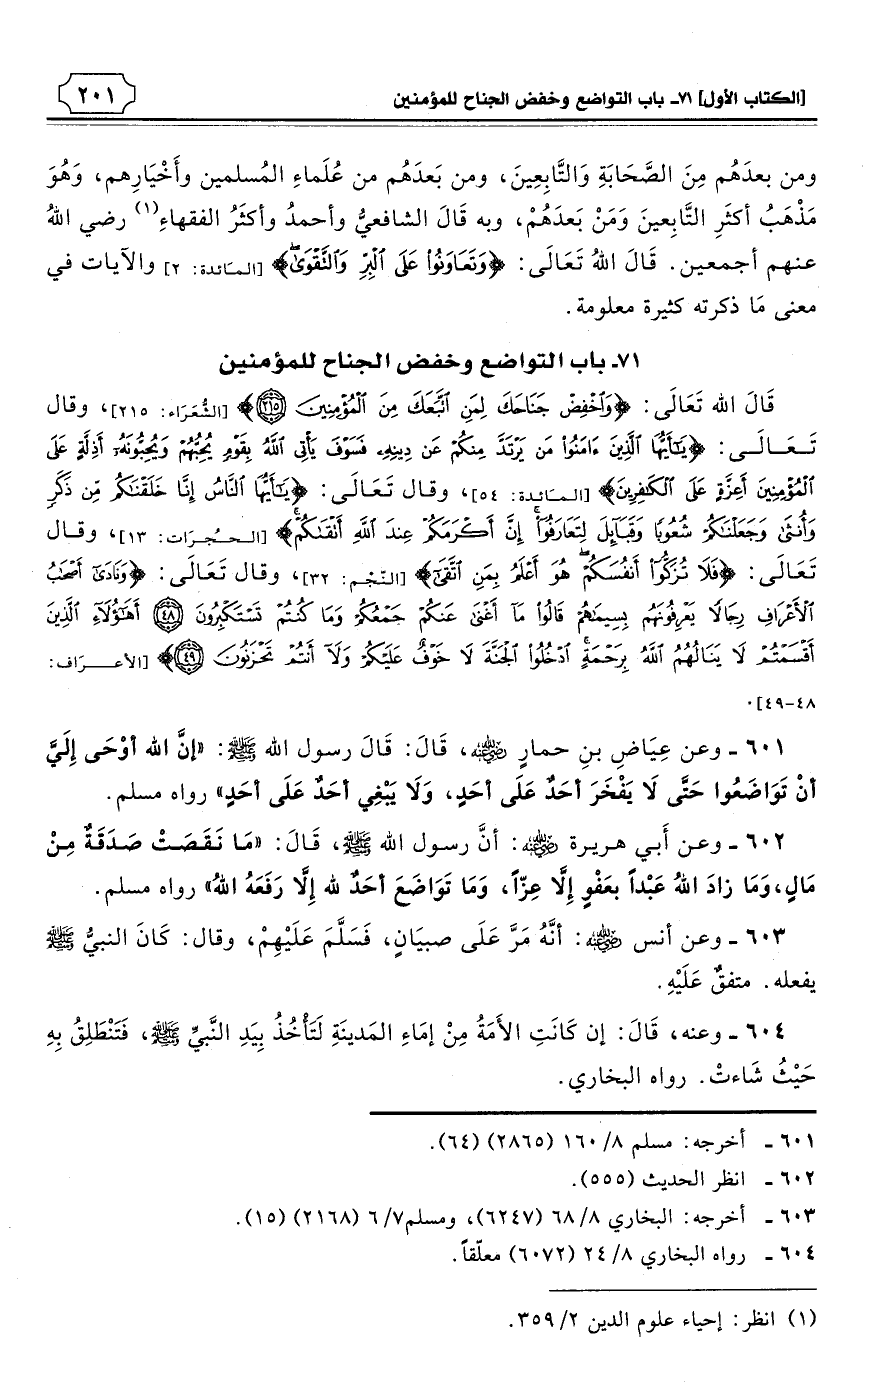 [الكتاب الأول] ٧١ـ باب التواضع وخفض الجناح للمؤمنين
٢٠١
ومن بعدَهُم مِنَ الصَّحَابَةِ وَالتَّابِعِينَ، ومن بَعدَهُم من عُلَماءِ المُسلمين وأَخْيَارِهم، وَهُوَ
مَذْهَبُ أكثَرِ التَّابعينَ وَمَنْ بَعدَهُمْ، وبه قَالَ الشافعيُّ وأحمدُ وأكثَرُ الفقهاءِ(١) رضي اللهُ
عنهم أجمعين. قَالَ اللهُ تَعَالَى: ﴿وَتَعَاوَنُوا۟ عَلَى ٱلۡبِرِّ وَٱلتَّقۡوَىٰۖ﴾ [المَائدة: ٢] والآيات في
معنى مَا ذكرته كثيرة معلومة.
٧١ـ باب التواضع وخفض الجناح للمؤمنين
قَالَ الله تَعَالَى: ﴿وَٱخۡفِضۡ جَنَاحَكَ لِمَنِ ٱتَّبَعَكَ مِنَ ٱلۡمُؤۡمِنِينَ ٢١٥﴾ [الشُّعَرَاء: ٢١٥]، وقال
تَـعَــالَــى: ﴿يَـٰٓأَيُّهَا ٱلَّذِينَ ءَامَنُوا۟ مَن يَرۡتَدَّ مِنكُمۡ عَن دِينِهِۦ فَسَوۡفَ يَأۡتِى ٱللَّهُ بِقَوۡمٍ يُحِبُّهُمۡ وَيُحِبُّونَهُۥٓ أَذِلَّةٍ عَلَى
ٱلۡمُؤۡمِنِينَ أَعِزَّةٍ عَلَى ٱلۡكَـٰفِرِينَ﴾ [المـَـائدة: ٥٤]، وقال تَعَالَى: ﴿يَـٰٓأَيُّهَا ٱلنَّاسُ إِنَّا خَلَقۡنَـٰكُم مِّن ذَكَرٍ
وَأُنثَىٰ وَجَعَلۡنَـٰكُمۡ شُعُوبًا وَقَبَآئِلَ لِتَعَارَفُوٓا۟ۚ إِنَّ أَكۡرَمَكُمۡ عِندَ ٱللَّهِ أَتۡقَىٰكُمۡۚ﴾ [الـحُـجرَات: ١٣]، وقــال
تَعَالَى: ﴿فَلَا تُزَكُّوٓا۟ أَنفُسَكُمۡۖ هُوَ أَعۡلَمُ بِمَنِ ٱتَّقَىٰٓ﴾ [النّجْم: ٣٢]، وقال تَعَالَى: ﴿وَنَادَىٰٓ أَصۡحَـٰبُ
ٱلۡأَعۡرَافِ رِجَالًا يَعۡرِفُونَهُم بِسِيمَىٰهُمۡ قَالُوا۟ مَآ أَغۡنَىٰ عَنكُمۡ جَمۡعُكُمۡ وَمَا كُنتُمۡ تَسۡتَكۡبِرُونَ ٤٨ أَهَـٰٓؤُلَآءِ ٱلَّذِينَ
أَقۡسَمۡتُمۡ لَا يَنَالُهُمُ ٱللَّهُ بِرَحۡمَةٍۚ ٱدۡخُلُوا۟ ٱلۡجَنَّةَ لَا خَوۡفٌ عَلَيۡكُمۡ وَلَآ أَنتُمۡ تَحۡزَنُونَ ٤٩﴾ [الأعــرَاف:
٤٨-٤٩].
٦٠١ ـ وعن عِيَاضِ بنِ حمارٍ رضي الله عنه، قَالَ: قَالَ رسول الله ﷺ: «إنَّ الله أوْحَى إِلَيَّ
أنْ تَوَاضَعُوا حَتَّى لَا يَفْخَرَ أحَدٌ عَلَى أحَدٍ، وَلَا يَبْغِي أحَدٌ عَلَى أحَدٍ» رواه مسلم.
٦٠٢ ـ وعن أَبي هريرة رضي الله عنه: أنَّ رسول الله ﷺ، قَالَ: «مَا نَقَصَتْ صَدَقَةٌ مِنْ
مَالٍ، وَمَا زادَ اللهُ عَبْداً بعَفْوٍ إِلَّا عِزّاً، وَمَا تَوَاضَعَ أحَدٌ لله إِلَّا رَفَعَهُ اللهُ» رواه مسلم.
٦٠٣ ـ وعن أنس رضي الله عنه: أنَّهُ مَرَّ عَلَى صبيَانٍ، فَسَلَّمَ عَلَيْهِمْ، وقال: كَانَ النبيُّ ﷺ
يفعله. متفقٌ عَلَيْهِ.
٦٠٤ ـ وعنه، قَالَ: إن كَانَتِ الأَمَةُ مِنْ إمَاءِ المَدينَةِ لَتَأْخُذُ بِيَدِ النَّبيِّ ﷺ، فَتَنْطَلِقُ بِهِ
حَيْثُ شَاءتْ. رواه البخاري.
٦٠١ ـ أخرجه: مسلم ٨/ ١٦٠ (٢٨٦٥) (٦٤).
٦٠٢ ـ انظر الحديث (٥٥٥).
٦٠٣ ـ أخرجه: البخاري ٨/ ٦٨ (٦٢٤٧)، ومسلم٧/ ٦ (٢١٦٨) (١٥).
٦٠٤ ـ رواه البخاري ٨/ ٢٤ (٦٠٧٢) معلّقاً.
(١) انظر: إحياء علوم الدين ٢/ ٣٥٩.